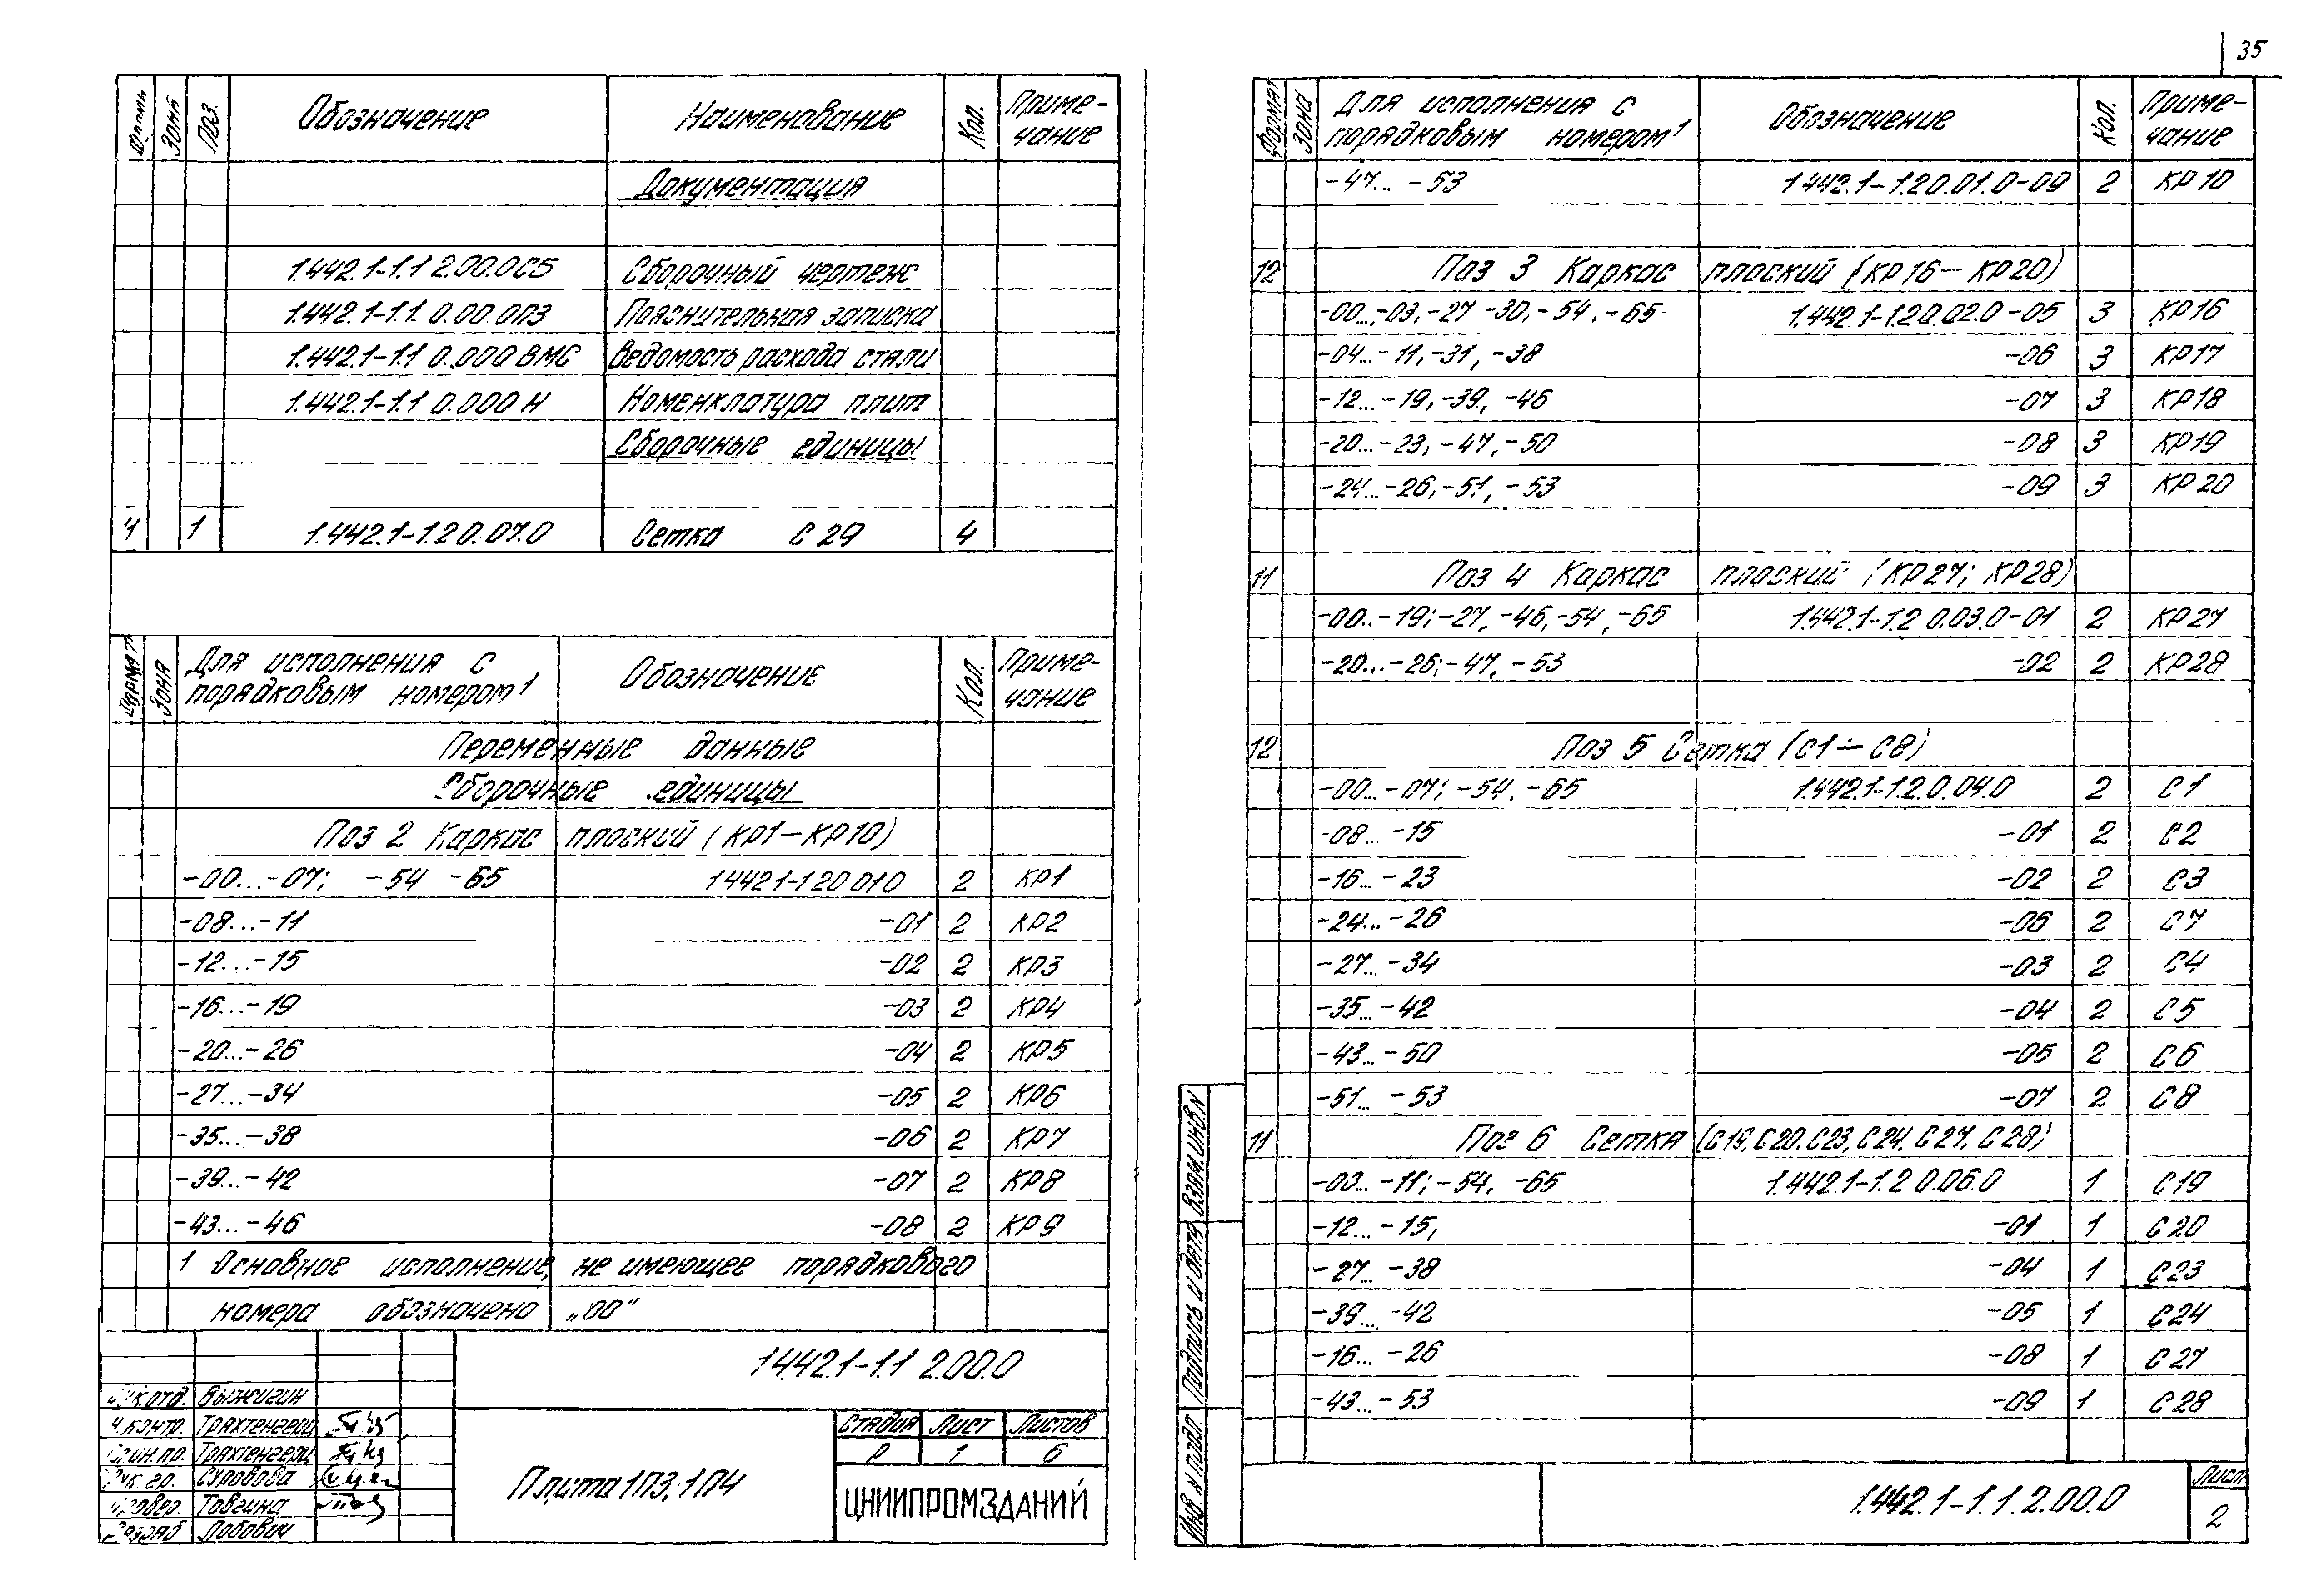 35
Формат Зона Поз. Обозначение Наименование Кол. Приме-
чание
Документация
1.442.1-1.1 2.00.0СБ Сборочный чертеж
1.442.1-1.1 0.00.0ПЗ Пояснительная записка
1.442.1-1.1 0.000 ВМС Ведомость расхода стали
1.442.1-1.1 0.000 Н Номенклатура плит
Сборочные единицы
4 1 1.442.1-1.2 0.07.0 Сетка С 29 4
Формат Зона Для исполнения с
порядковым номером¹ Обозначение Кол. Приме-
чание
Переменные данные
Сборочные единицы
Поз 2 Каркас плоский (КР1—КР10)
-00...-07; -54 -65 1 442 1-1 2 0 01 0 2 КР1
-08...-11 -01 2 КР2
-12...-15 -02 2 КР3
-16...-19 -03 2 КР4
-20...-26 -04 2 КР5
-27...-34 -05 2 КР6
-35...-38 -06 2 КР7
-39...-42 -07 2 КР8
-43...-46 -08 2 КР9
1 Основное исполнение, не имеющее порядкового
номера обозначено „00“
1.442.1-1.1 2.00.0
Рук.отд. Выжигин
Н.контр. Трахтенгерц
Трахтенгерц
Рук гр. Суровова
Провер. Товгина
Разраб Лобович
Плита 1П3; 1П4
Стадия Лист Листов
Р 1 6
ЦНИИПРОМЗДАНИЙ
Формат Зона Для исполнения с
порядковым номером¹ Обозначение Кол. Приме-
чание
-47... -53 1.442.1-1.2 0.01.0-09 2 КР10
12 Поз 3 Каркас плоский (КР16—КР20)
-00...-03, -27 -30, -54, -65 1.442.1-1.2 0.02.0-05 3 КР16
-04...-11, -31, -38 -06 3 КР17
-12...-19, -39, -46 -07 3 КР18
-20...-23, -47, -50 -08 3 КР19
-24...-26, -51, -53 -09 3 КР20
11 Поз 4 Каркас плоский (КР27; КР28)
-00..-19; -27, -46, -54, -65 1.442.1-1.2 0.03.0-01 2 КР27
-20...-26; -47, -53 -02 2 КР28
12 Поз 5 Сетка (С1÷С8)
-00...-07; -54, -65 1.442.1-1.2.0.04.0 2 С1
-08...-15 -01 2 С2
-16...-23 -02 2 С3
-24...-26 -06 2 С7
-27...-34 -03 2 С4
-35...-42 -04 2 С5
-43...-50 -05 2 С6
-51... -53 -07 2 С8
11 Поз 6 Сетка (С19, С20, С23, С24, С27, С28)
-00... -11; -54, -65 1.442.1-1.2 0.06.0 1 С19
-12...-15, -01 1 С20
-27... -38 -04 1 С23
-39... -42 -05 1 С24
-16... -26 -08 1 С27
-43... -53 -09 1 С28
Инв. N подл. Подпись и дата Взам.инв.N
1.442.1-1.1.2.00.0
Лист
2